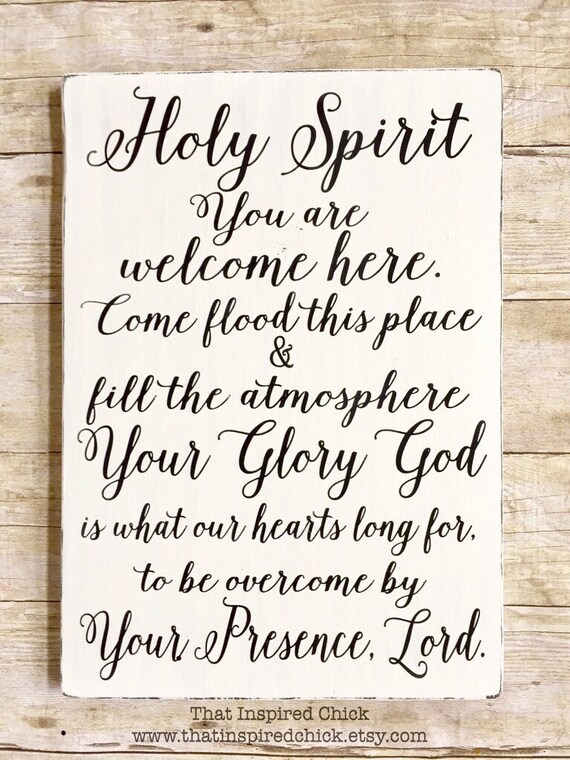 Holy Spirit
You are
welcome here.
Come flood this place
&
fill the atmosphere
Your Glory God
is what our hearts long for,
to be overcome by
Your Presence, Lord.
That Inspired Chick
www.thatinspiredchick.etsy.com